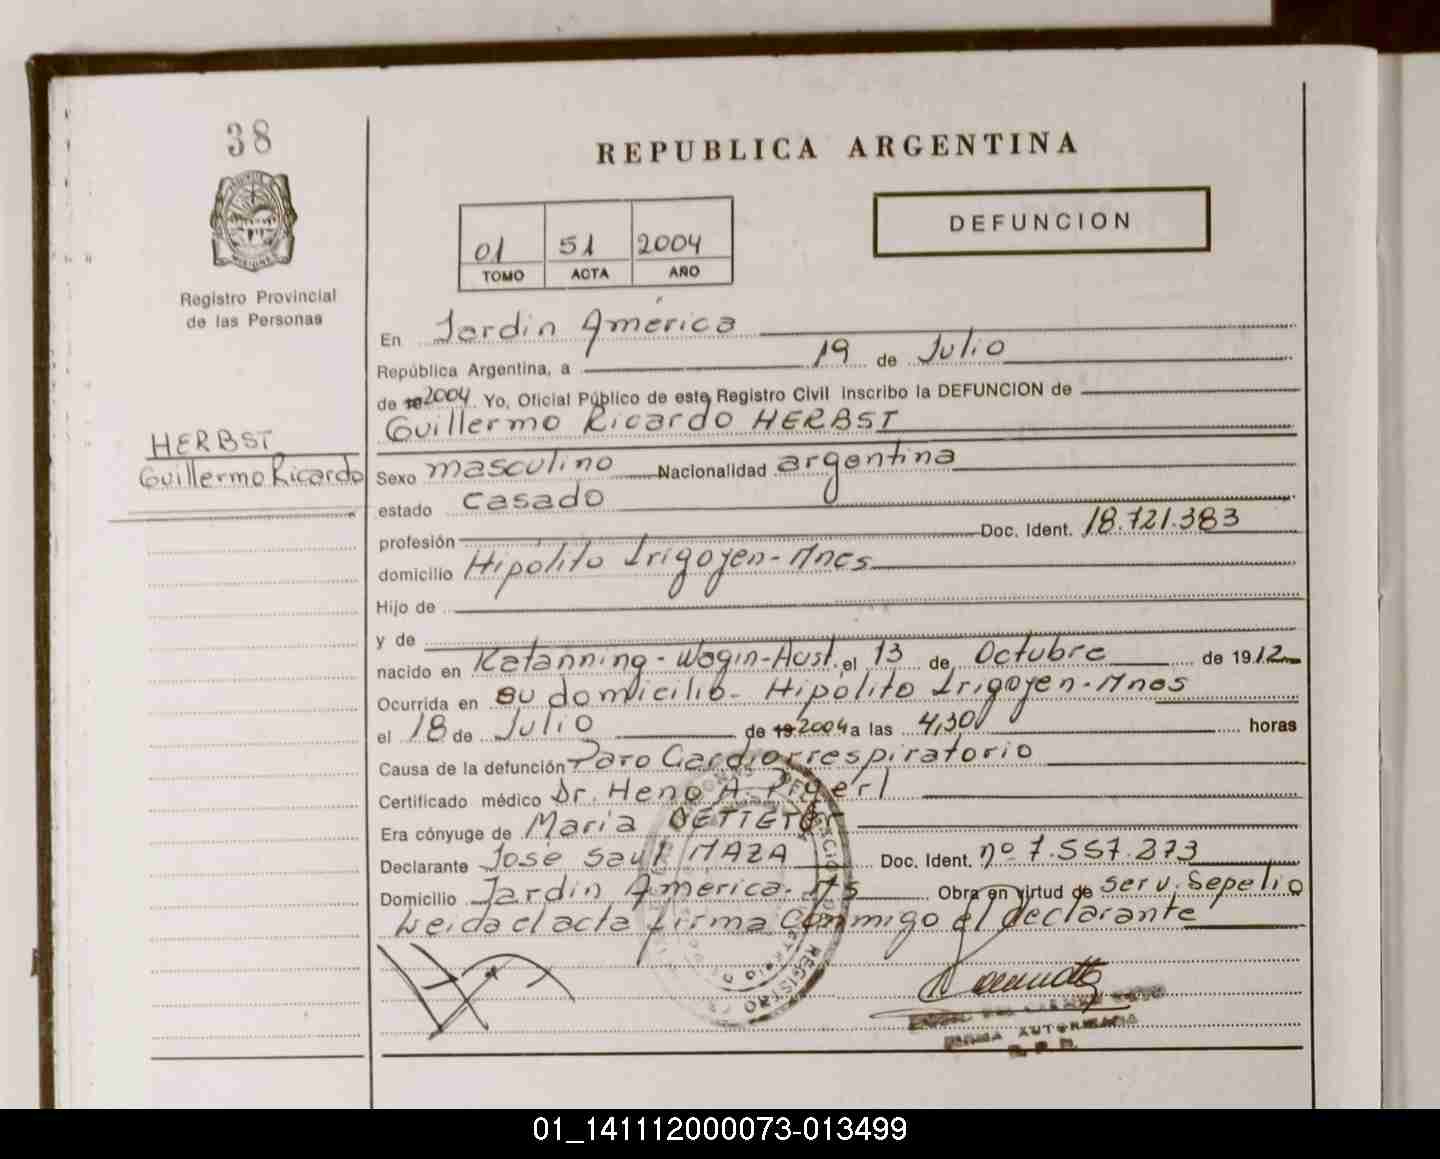 38
Registro Provincial
de las Personas
HERBST
Guillermo Ricardo
REPUBLICA ARGENTINA
01 51 2004
TOMO ACTA AÑO
DEFUNCION
En Jardin América
República Argentina, a 19 de Julio
de 19 2004 Yo, Oficial Público de este Registro Civil inscribo la DEFUNCION de
Guillermo Ricardo HERBST
Sexo masculino Nacionalidad argentina
estado casado
profesión Doc. Ident. 18.721.383
domicilio Hipólito Irigoyen - Mnes
Hijo de
y de
nacido en Katanning - Wogin - Aust. el 13 de Octubre de 1912
Ocurrida en su domicilio - Hipólito Irigoyen - Mnes
el 18 de Julio de 19 2004 a las 4,30 horas
Causa de la defunción Paro Cardiorrespiratorio
Certificado médico Dr. Heno A. Pigerl
Era cónyuge de Maria
Declarante José Saul MAZA Doc. Ident. nº 7.557.273
Domicilio Jardin America. Ms Obra en virtud de serv. Sepelio
Leida el acta firma conmigo el declarante
FIRMA AUTORIZADA
01_141112000073-013499